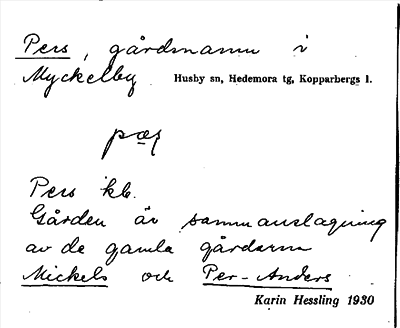 Pers, gårdnamn i
Myckelby Husby sn, Hedemora tg, Kopparbergs l.
pæs
Pers kb.
Gården är sammanslagning
av de gamla gårdarna
Mickels och Per-Anders
Karin Hessling 1930